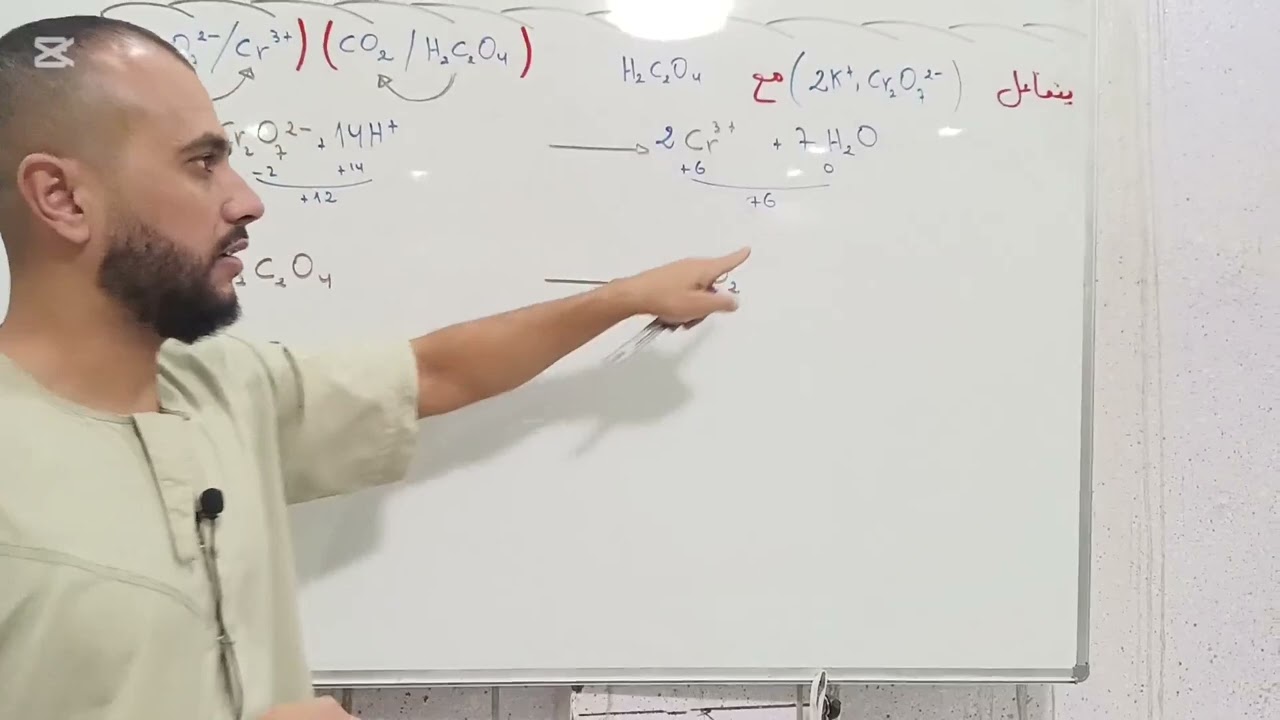 O₇²⁻/Cr³⁺) (CO₂/H₂C₂O₄)
يتفاعل (2K⁺, Cr₂O₇²⁻) مع H₂C₂O₄
Cr₂O₇²⁻ + 14H⁺ → 2Cr³⁺ + 7H₂O
-2 +14 +6 0
+12 +6
₂C₂O₄ → O₂